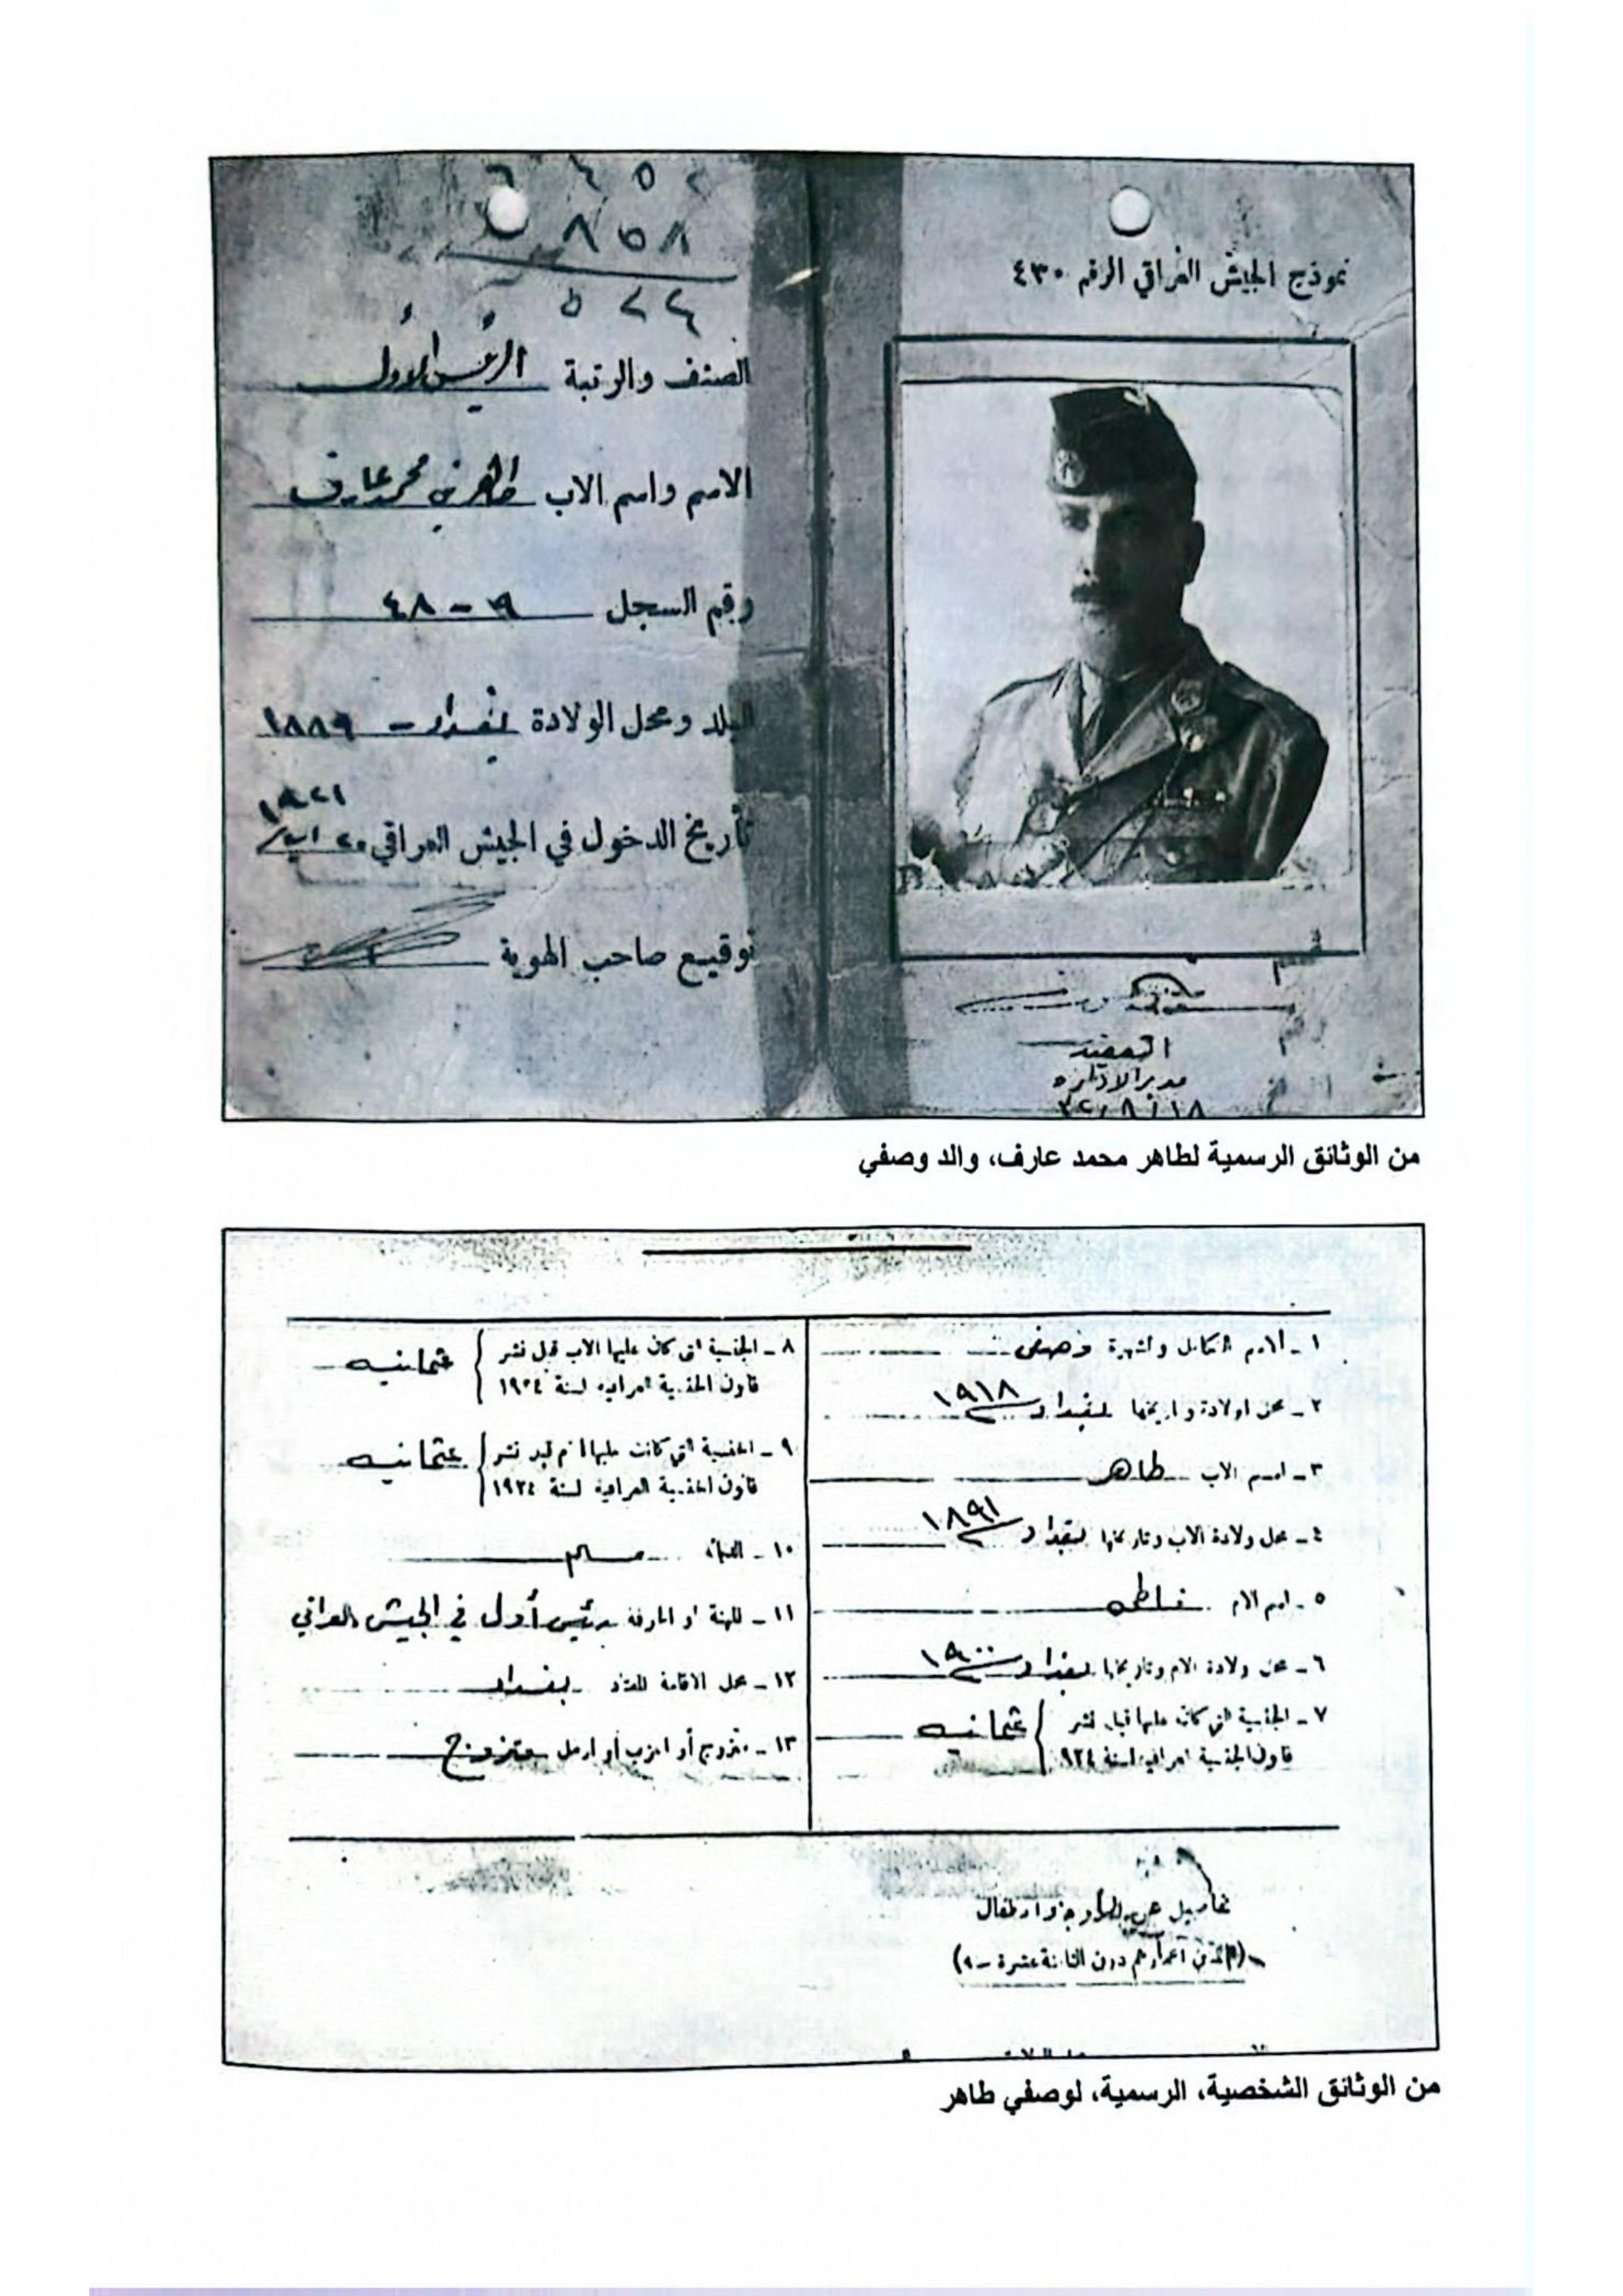 نموذج الجيش العراقي الرقم ٤٣٠
العقيد
مدير الادارة
٣٢/٨/١٨
٨٥٨
٥٢٤
الصنف والرتبة الرئيس الاول
الاسم واسم الاب طاهر بن محمد عارف
رقم السجل ٩ - ٤٨
البلد ومحل الولادة بغداد - ١٨٨٩
١٩٢١
تأريخ الدخول في الجيش العراقي ٢٠
توقيع صاحب الهوية
من الوثائق الرسمية لطاهر محمد عارف، والد وصفي
١ - الاسم الكامل والشهرة وصفي
٢ - محل الولادة وتاريخها بغداد ١٩١٨
٣ - اسم الاب طاهر
٤ - محل ولادة الاب وتاريخها بغداد ١٨٩١
٥ - اسم الام فاطمه
٦ - محل ولادة الام وتاريخها بغداد ١٩٠٠
٧ - الجنسية التي كان عليها قبل نشر
قانون الجنسية العراقية لسنة ٩٢٤ عثمانيه
٨ - الجنسية التي كان عليها الاب قبل نشر
قانون الجنسية العراقية لسنة ١٩٢٤ عثمانيه
٩ - الجنسية التي كانت عليها الام قبل نشر
قانون الجنسية العراقية لسنة ١٩٢٤ عثمانيه
١٠ - الديانة مسلم
١١ - المهنة او الحرفة رئيس أول في الجيش العراقي
١٢ - محل الاقامة بغداد
١٣ - متزوج أو اعزب أو ارمل متزوج
تفاصيل عن الزوجة والاطفال
(الذين اعمارهم دون الثامنة عشرة)
من الوثائق الشخصية، الرسمية، لوصفي طاهر